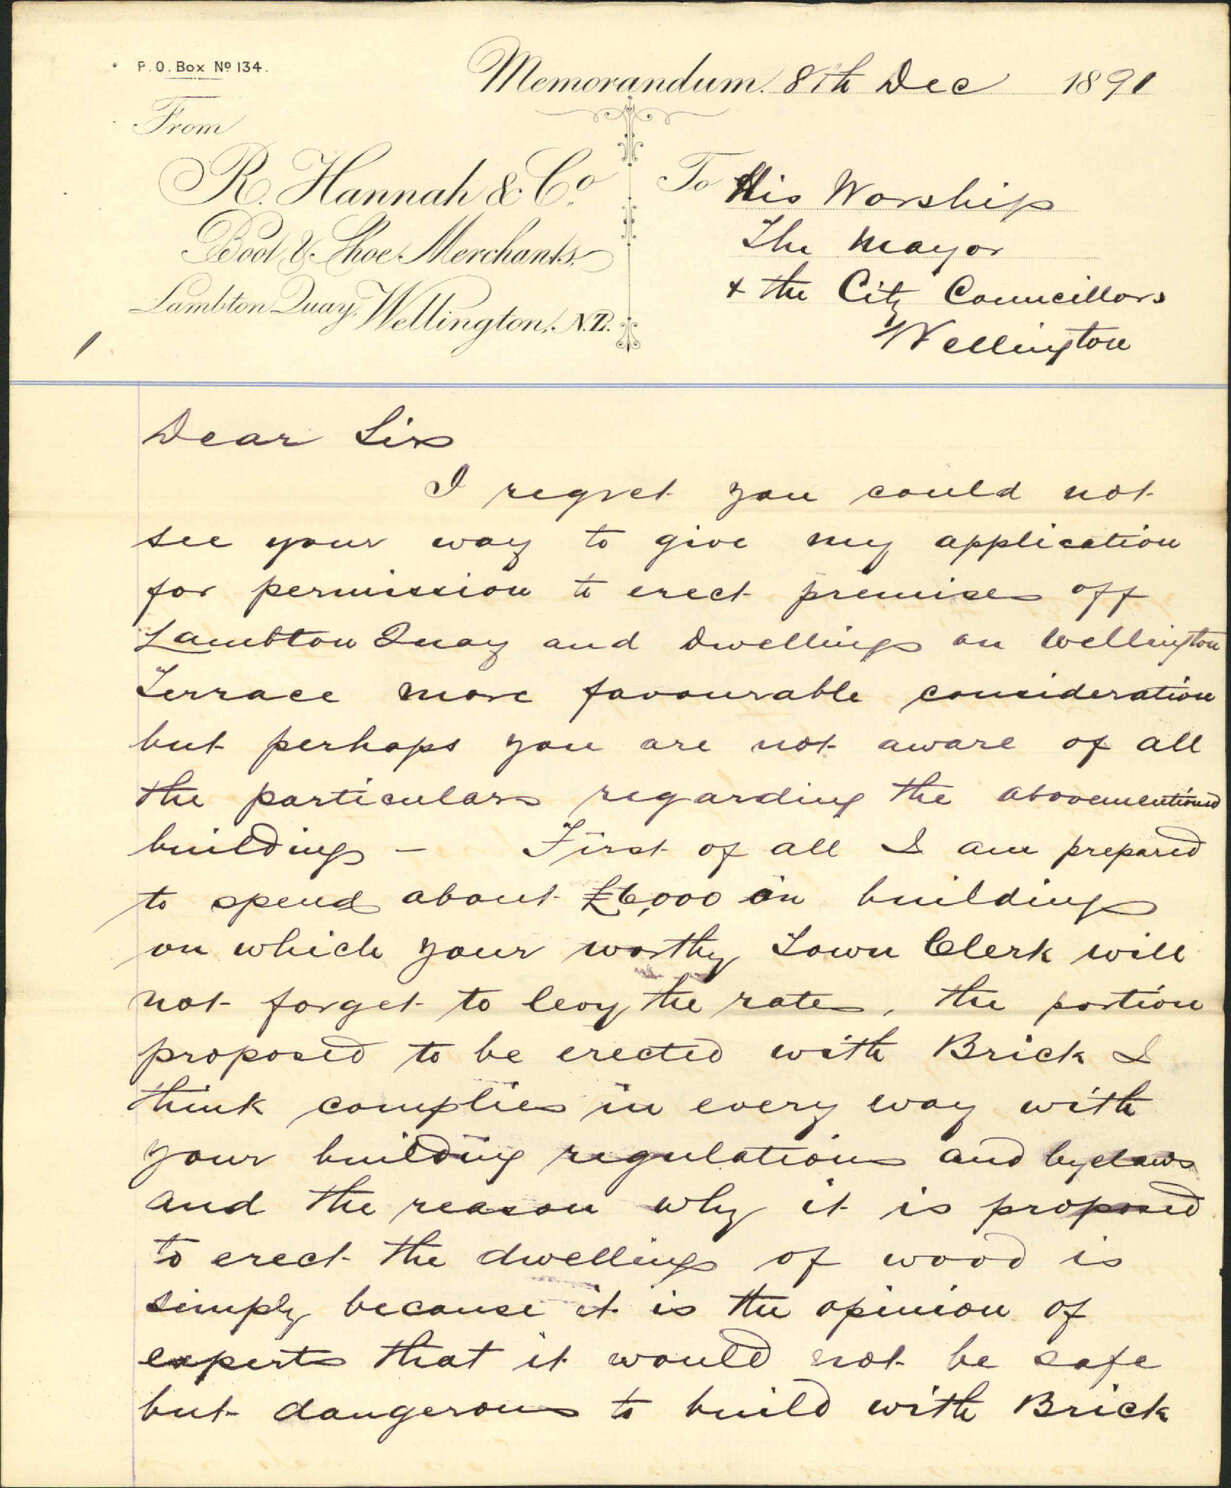 P.O. Box No 134.
Memorandum. 8th Dec 1891
From
R. Hannah & Co.
Boot & Shoe Merchants.
Lambton Quay, Wellington, N.Z.
To His Worship
The Mayor
& the City Councillors
Wellington
Dear Sirs
I regret you could not
see your way to give my application
for permission to erect premises off
Lambton Quay and Dwellings on Wellington
Terrace more favourable consideration
but perhaps you are not aware of all
the particulars regarding the abovementioned
buildings – First of all I am prepared
to spend about £6,000 in buildings
on which your worthy Town Clerk will
not forget to levy the rates, the portion
proposed to be erected with Brick I
think complies in every way with
your building regulations and byelaws
and the reason why it is proposed
to erect the dwellings of wood is
simply because it is the opinion of
experts that it would not be safe
but dangerous to build with Brick